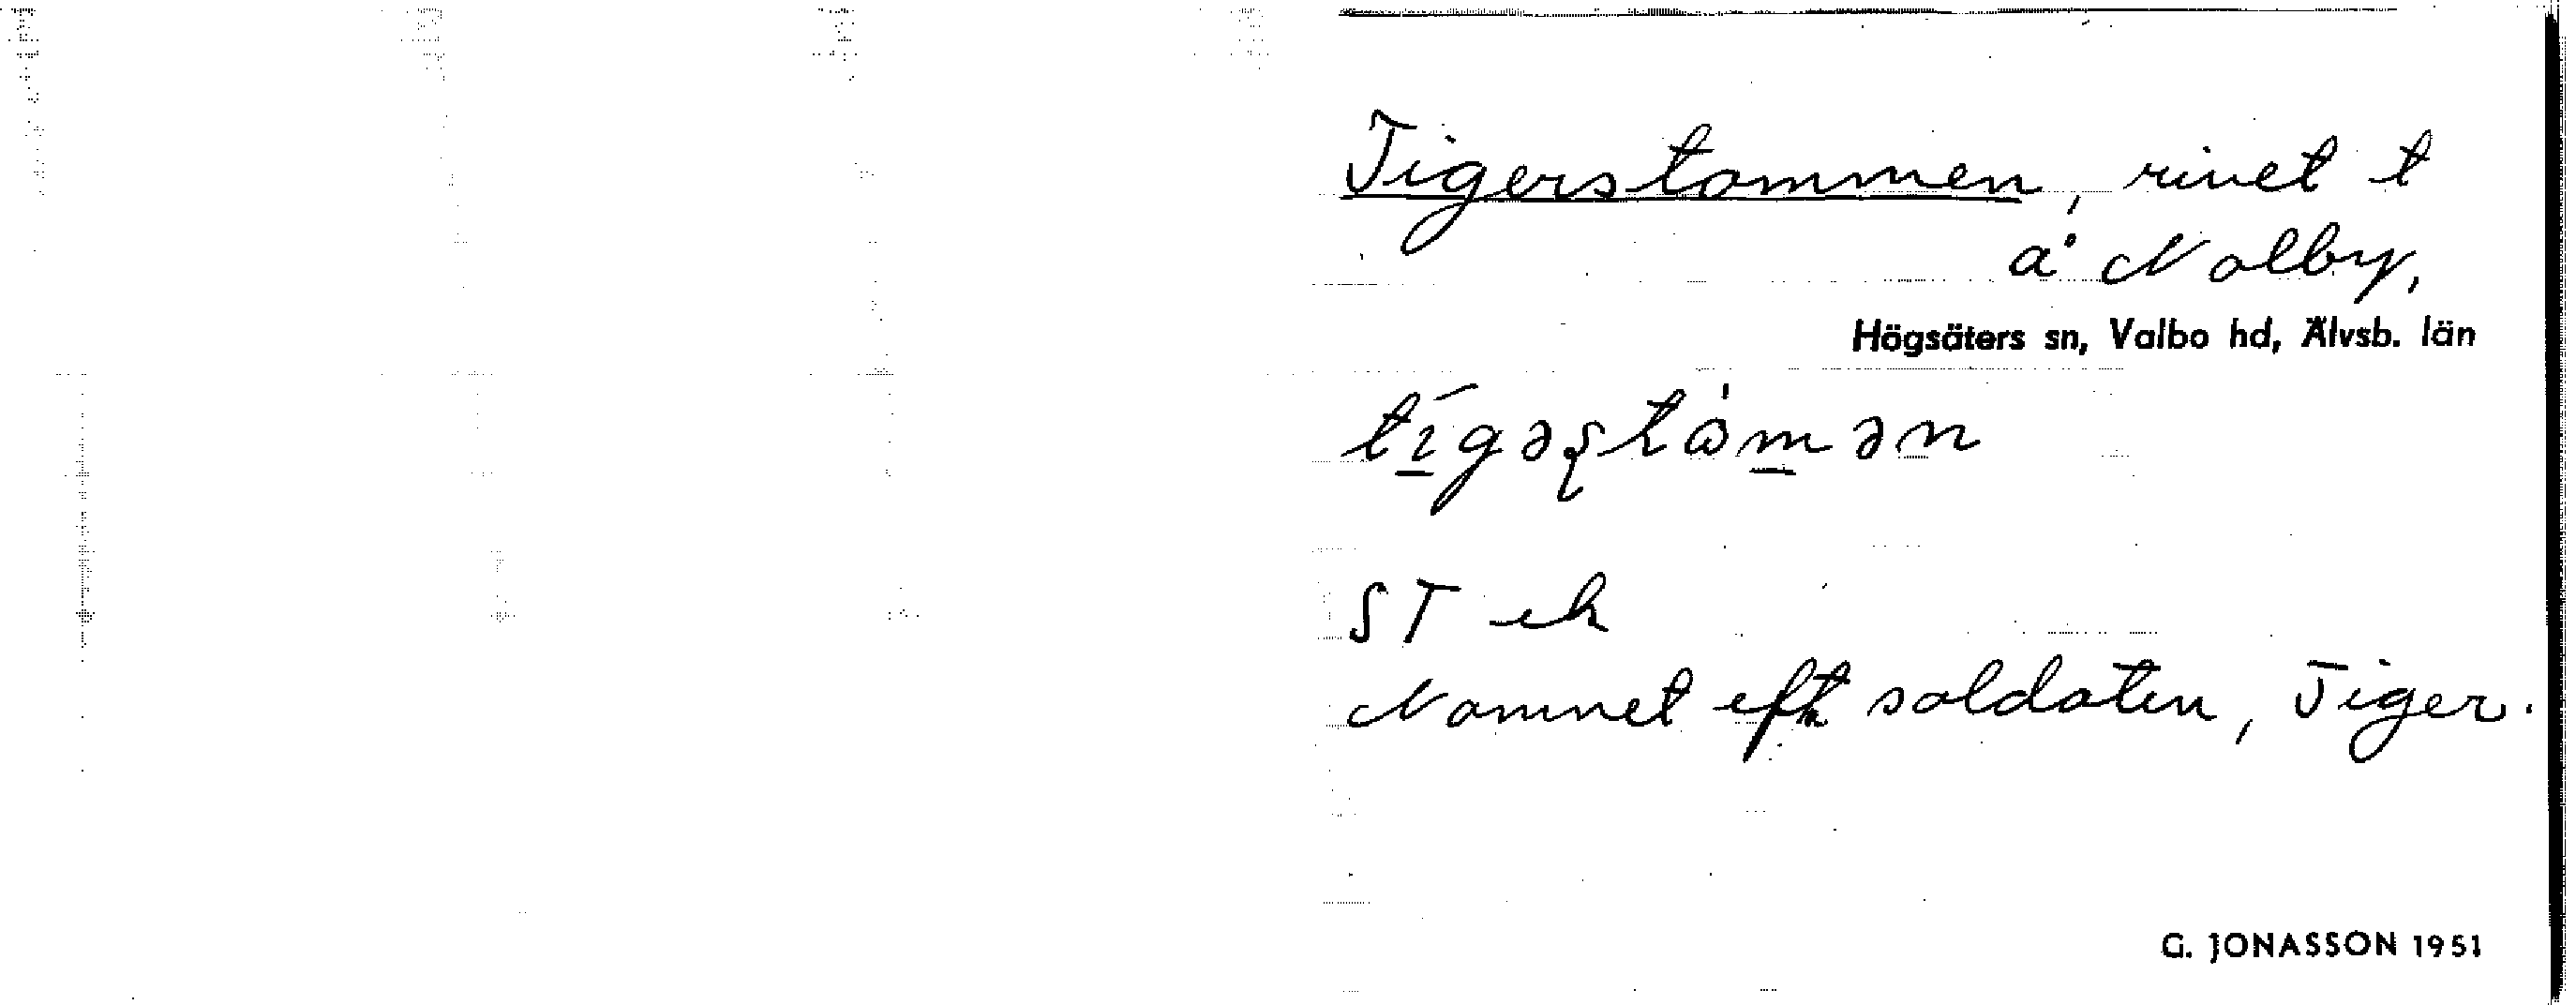 Tigerstommen, rivet t
å Nolby,
Högsäters sn, Valbo hd, Älvsb. län
ST ek
Namnet eft soldaten, Tiger.
G. JONASSON 1951